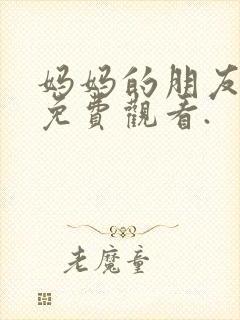 妈妈的朋友
免費觀看.
老魔童